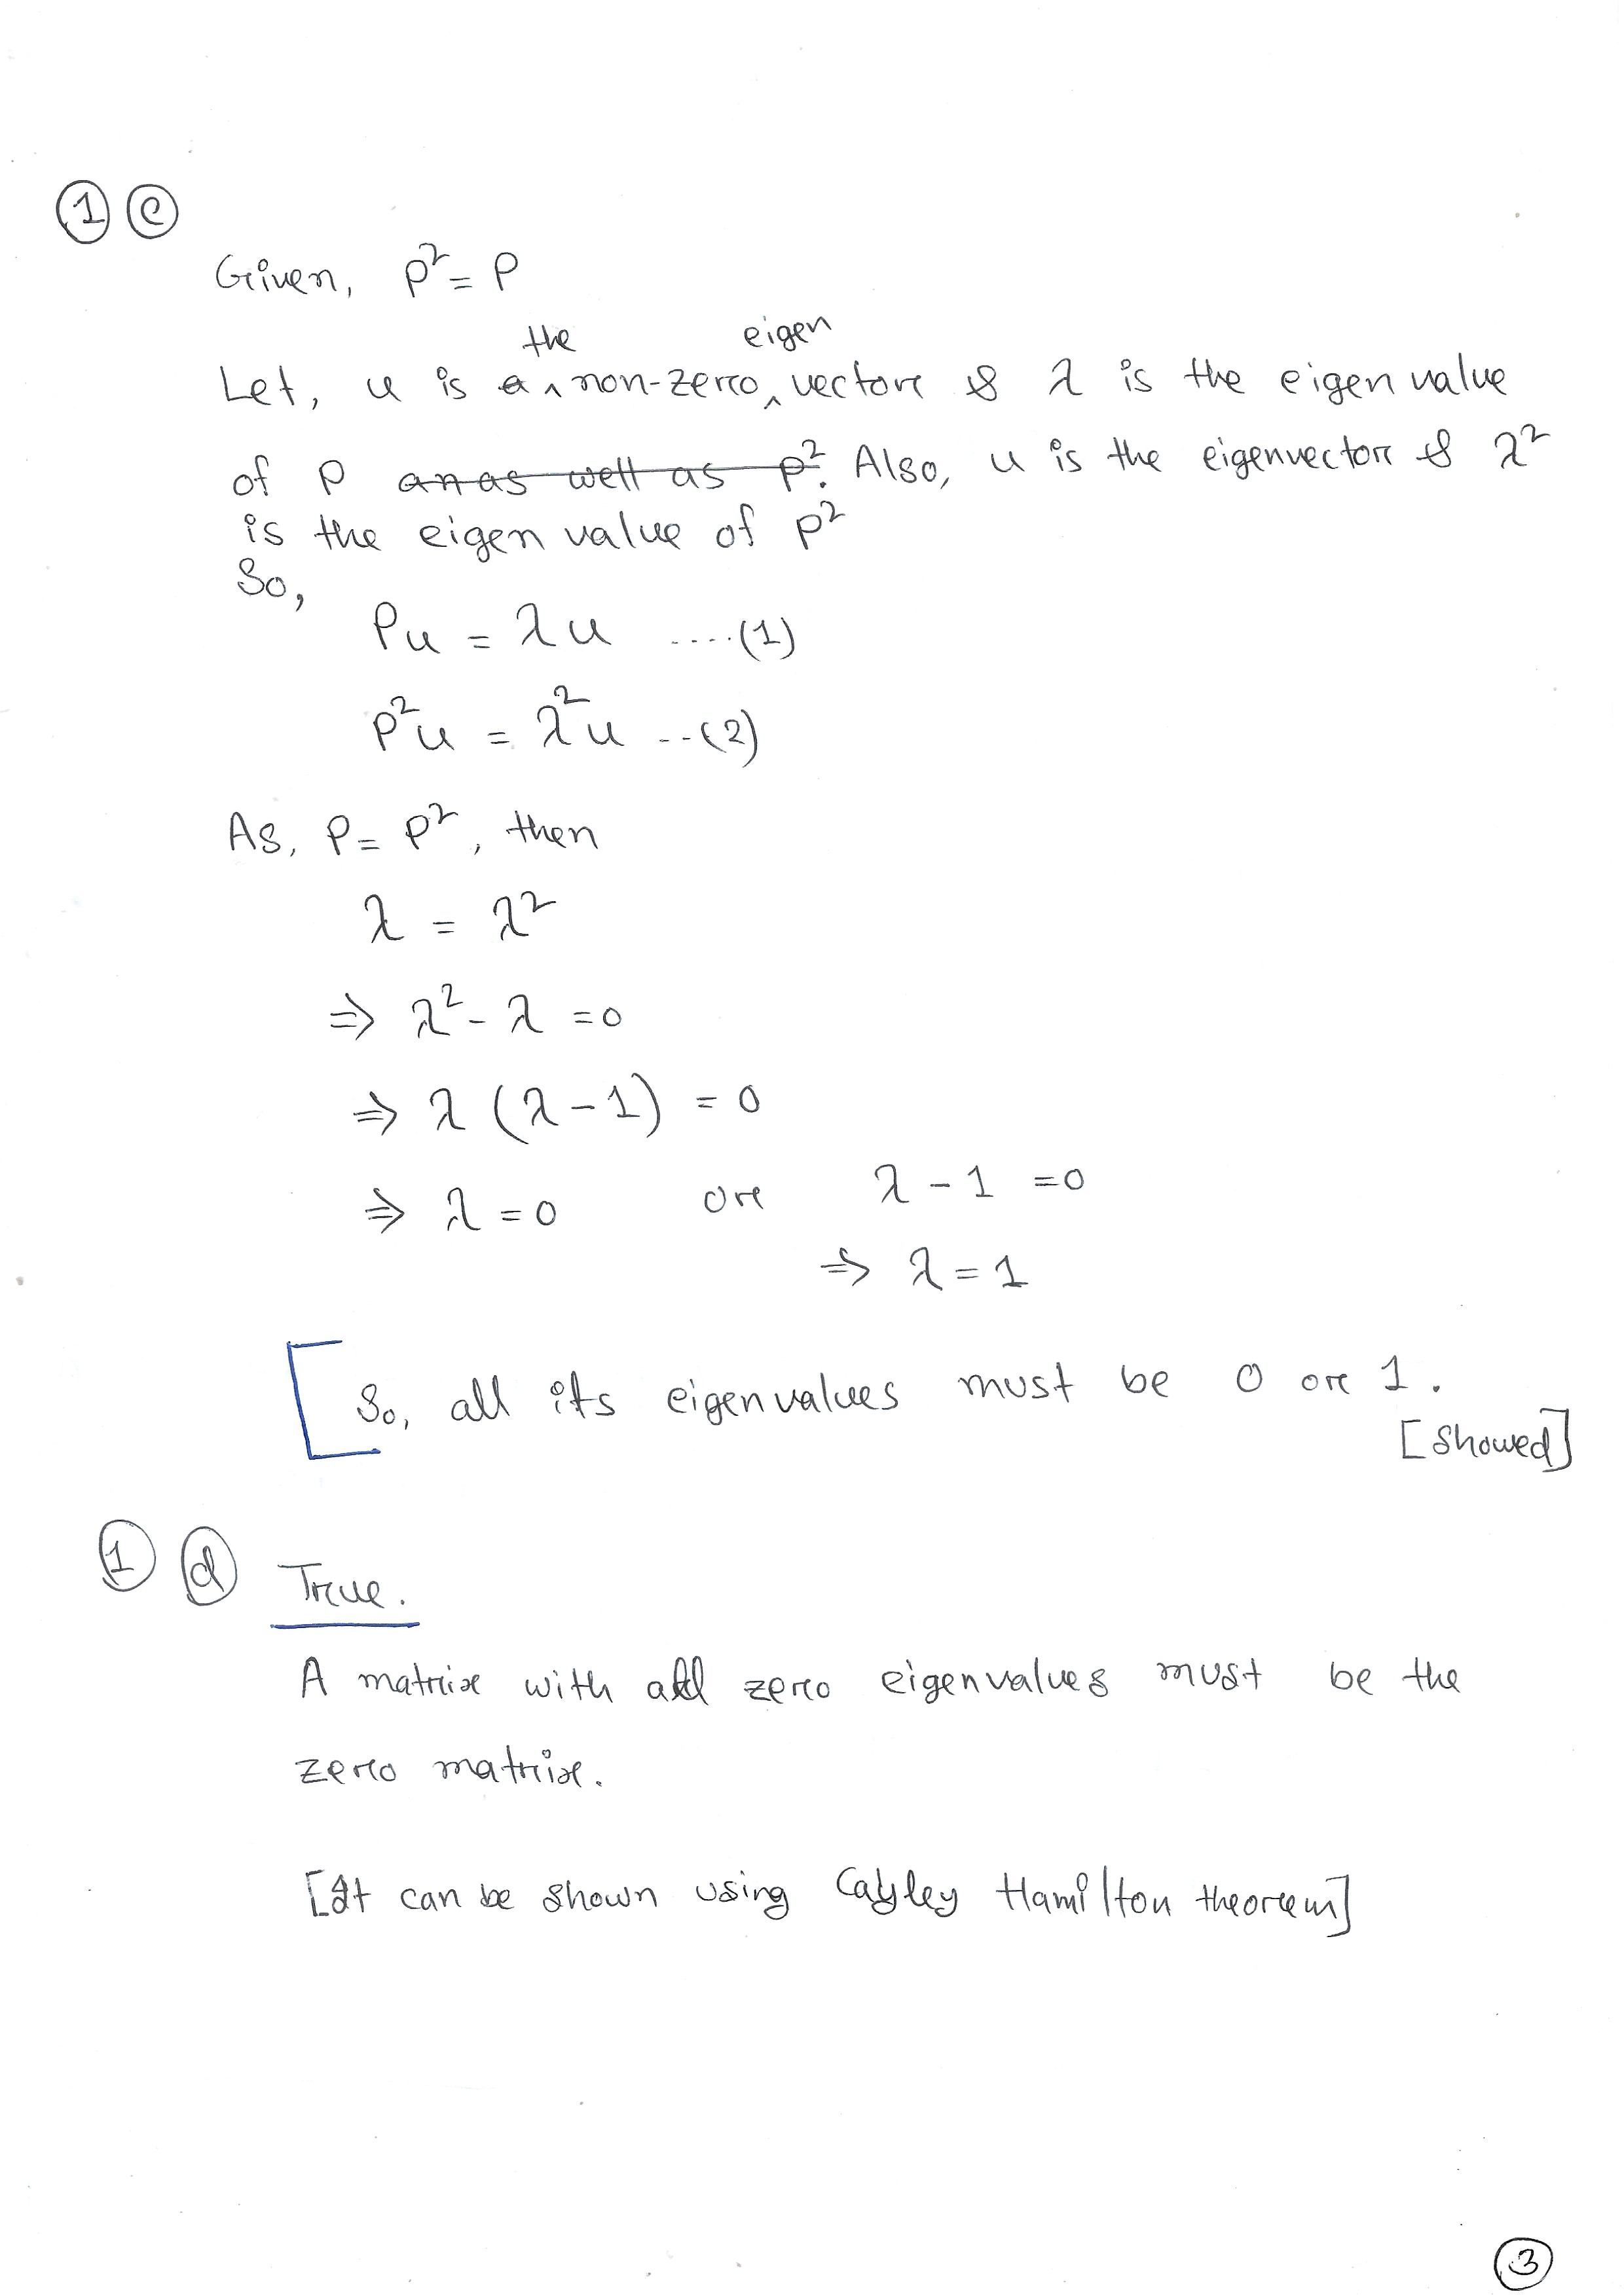 1 c
Given, P² = P
the eigen
Let, u is a ^ non-zero ^ vector & λ is the eigen value
of P an as well as P². Also, u is the eigenvector & λ²
is the eigen value of P²
So,
Pu = λu ....(1)
P²u = λ²u ..(2)
As, P = P², then
λ = λ²
⇒ λ² - λ = 0
⇒ λ (λ - 1) = 0
⇒ λ = 0 or λ - 1 = 0
⇒ λ = 1
So, all its eigenvalues must be 0 or 1.
[Showed]
1 d True.
A matrix with all zero eigenvalues must be the
zero matrix.
[It can be shown using Cayley Hamilton theorem]
3